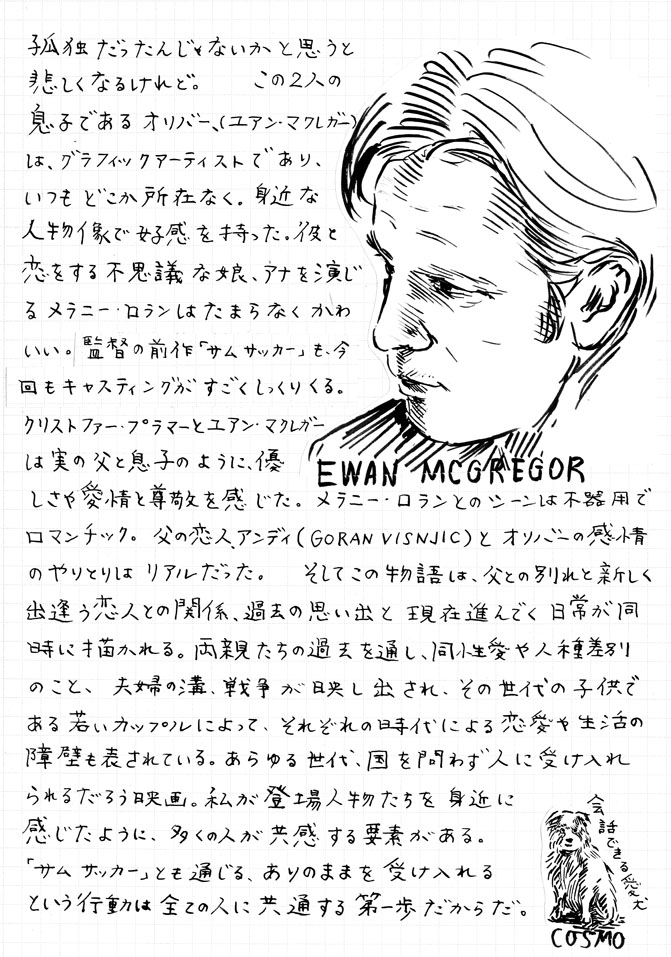 孤独だったんじゃないかと思うと
悲しくなるけれど。　この2人の
息子であるオリバー、(ユアン・マクレガー)
は、グラフィックアーティストであり、
いつもどこか所在なく。身近な
人物像で好感を持った。彼と
恋をする不思議な娘、アナを演じ
るメラニー・ロランはたまらなくかわ
いい。監督の前作「サムサッカー」も、今
回もキャスティングがすごくしっくりくる。
クリストファー・プラマーとユアン・マクレガー
は実の父と息子のように、優
しさや愛情と尊敬を感じた。メラニー・ロランとのシーンは不器用で
ロマンチック。父の恋人、アンディ(GORAN VISNJIC)とオリバーの感情
のやりとりはリアルだった。　そしてこの物語は、父との別れと新しく
出逢う恋人との関係、過去の思い出と現在進んでく日常が同
時に描かれる。両親たちの過去を通し、同性愛や人種差別
のこと、夫婦の溝、戦争が映し出され、その世代の子供で
ある若いカップルによって、それぞれの時代による恋愛や生活の
障壁も表されている。あらゆる世代、国を問わず人に受け入れ
られるだろう映画。私が登場人物たちを身近に
感じたように、多くの人が共感する要素がある。
「サムサッカー」とも通じる、ありのままを受け入れる
という行動は全ての人に共通する第一歩だからだ。
EWAN MCGREGOR
会話できる愛犬
COSMO